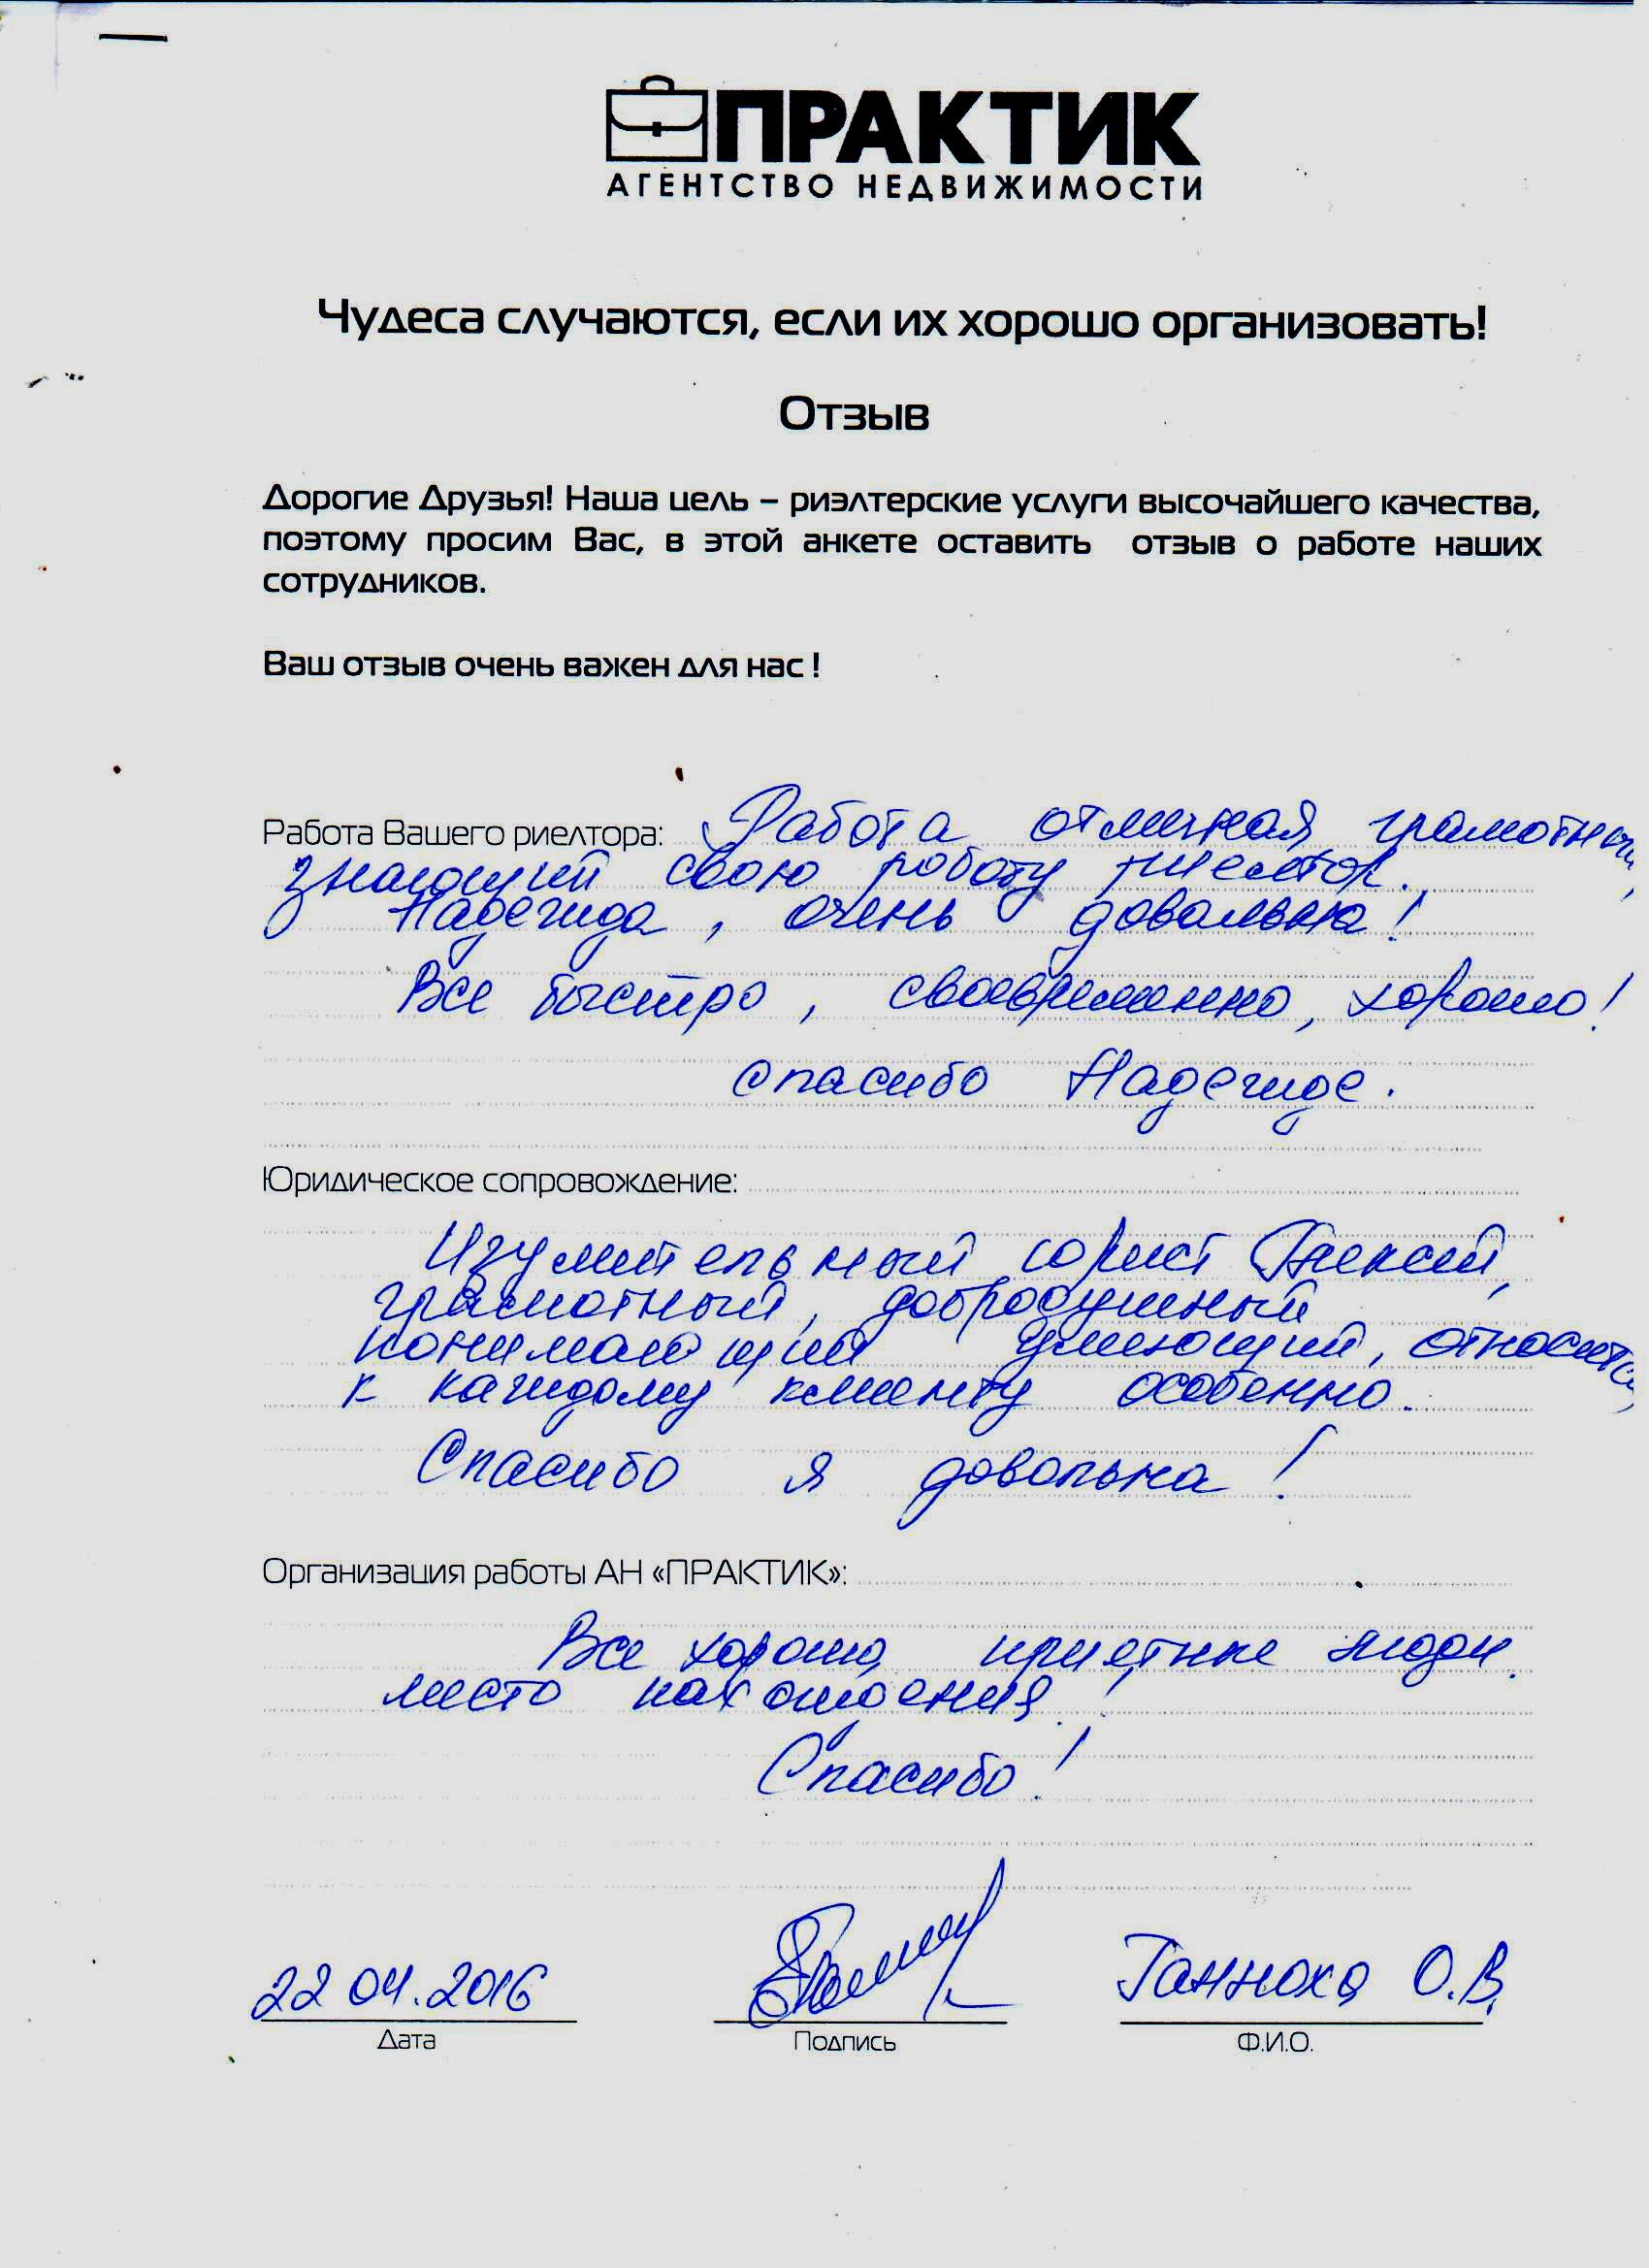 ПРАКТИК
АГЕНТСТВО НЕДВИЖИМОСТИ
Чудеса случаются, если их хорошо организовать!
Отзыв
Дорогие Друзья! Наша цель – риэлтерские услуги высочайшего качества,
поэтому просим Вас, в этой анкете оставить отзыв о работе наших
сотрудников.
Ваш отзыв очень важен для нас !
Работа Вашего риелтора: Работа отличная, грамотный,
знающий свою работу риелтор.
Надежда, очень довольна!
Все быстро, своевременно, хорошо!
Спасибо Надежде.
Юридическое сопровождение:
Изумительный юрист Алексей,
грамотный, добродушный
понимающий умеющий, относится
к каждому клиенту особенно.
Спасибо я довольна!
Организация работы АН «ПРАКТИК»:
Все хорошо, приятные люди.
место нахождения!
Спасибо!
22 04.2016 О.В.
Дата Подпись Ф.И.О.